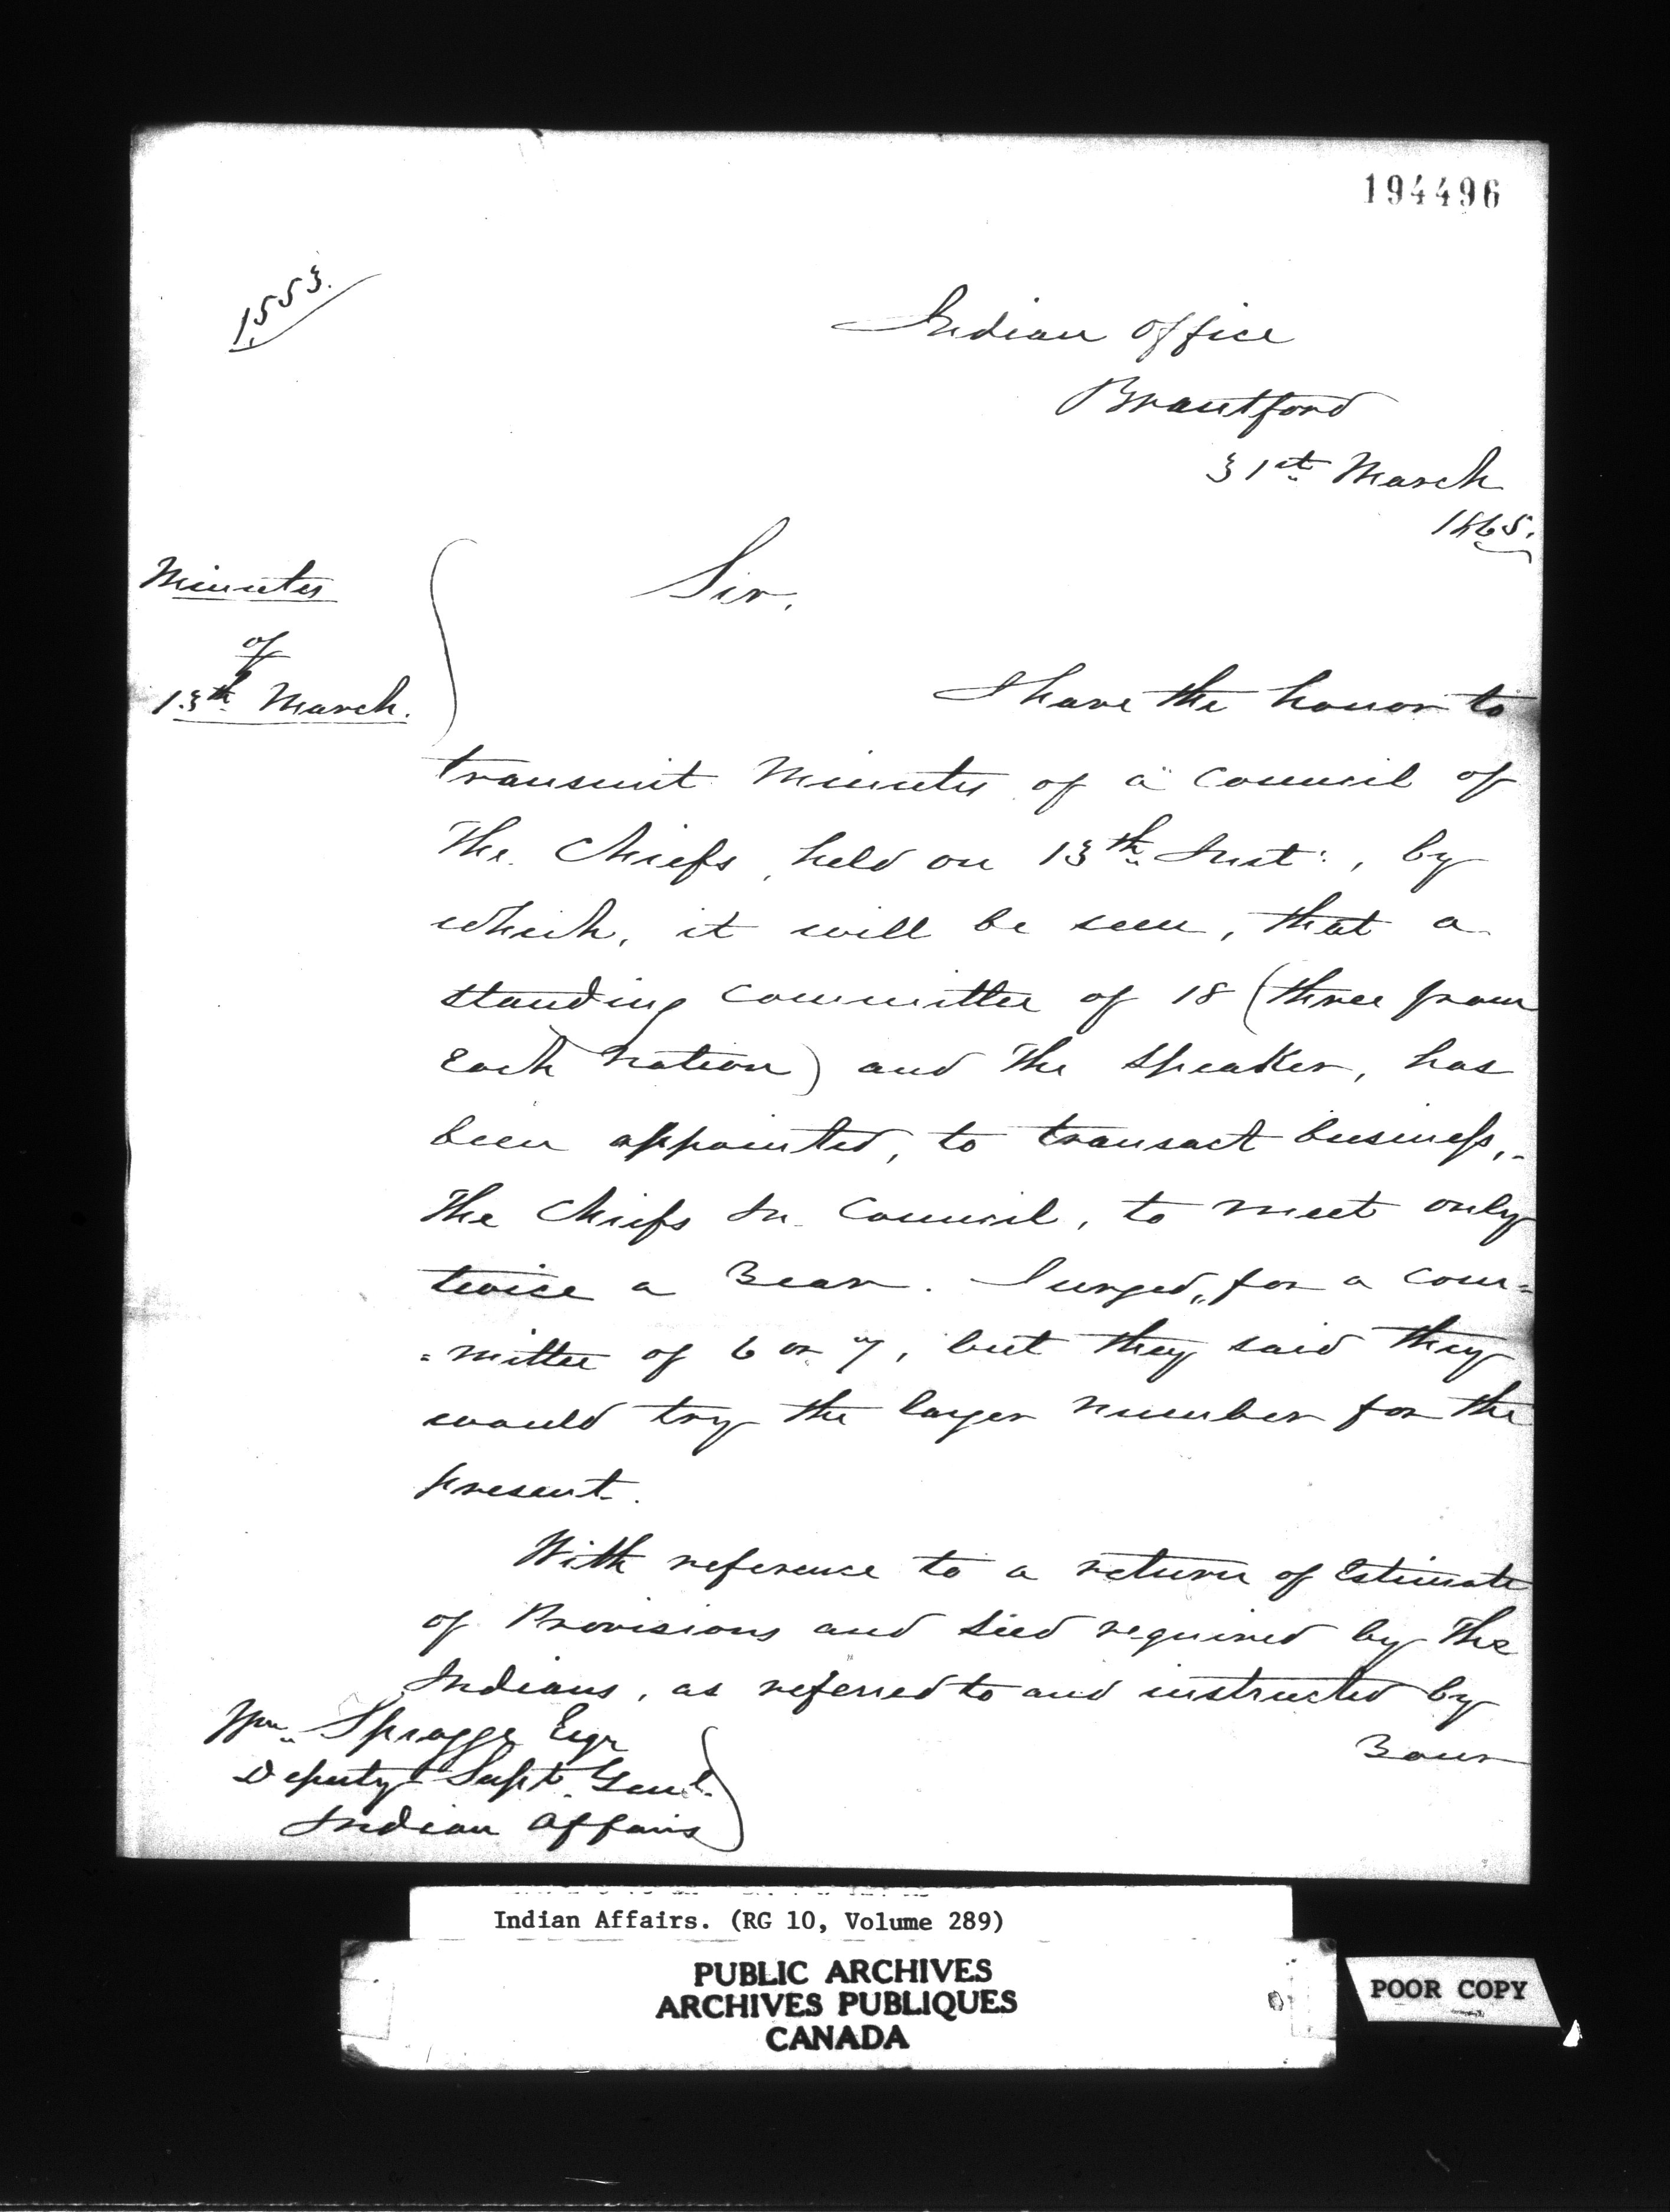 194496
1553.
Indian Office
Brantford
31st March
1865.
Minutes
of
13th March.
Sir,
I have the honor to
transmit Minutes of a Council of
The Chiefs, held on 13th Inst:, by
which, it will be seen, that a
standing Committee of 18 (three from
Each Nation) and The Speaker, has
been appointed, to transact business,
The Chiefs In Council, to meet only
twice a Year. I urged, for a Com=
=mittee of 6 or 7, but they said they
would try the larger number for the
present.
With reference to a return of Estimate
of Provisions and Seed required by The
Indians, as referred to and instructed by
Your
Wm. Spragge Esqr
Deputy Supt. Genl.
Indian Affairs
Indian Affairs. (RG 10, Volume 289)
PUBLIC ARCHIVES
ARCHIVES PUBLIQUES
CANADA
POOR COPY